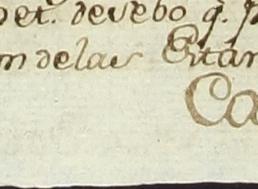 et. devebo q.
m de las Estan
Ca